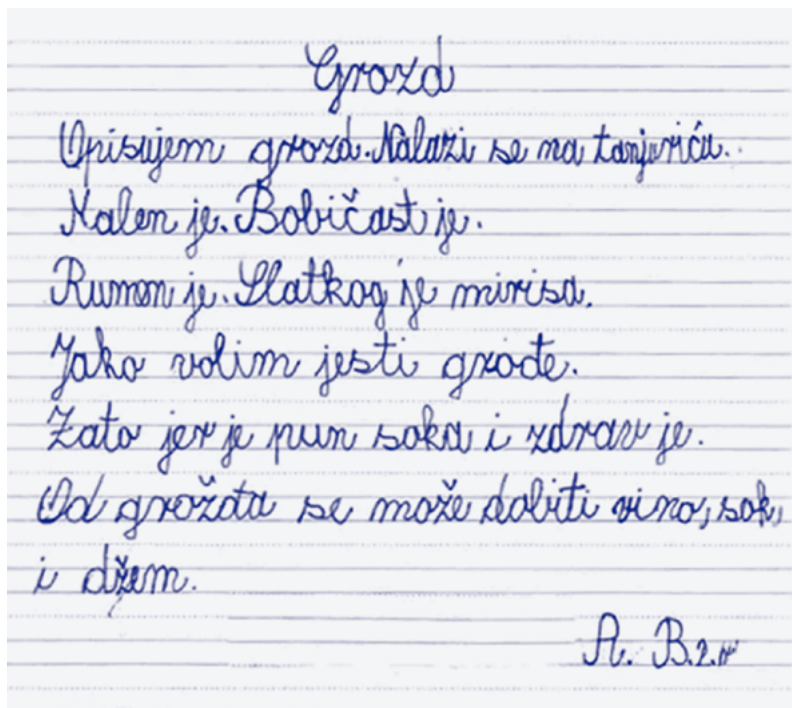 Grozd
Opisujem grozd. Nalazi se na tanjuriću.
Malen je. Bobičast je.
Rumen je. Slatkog je mirisa.
Jako volim jesti grođe.
Zato jer je pun soka i zdrav je.
Od grožđa se može dobiti vino, sok,
i džem.
A. B. 2.r